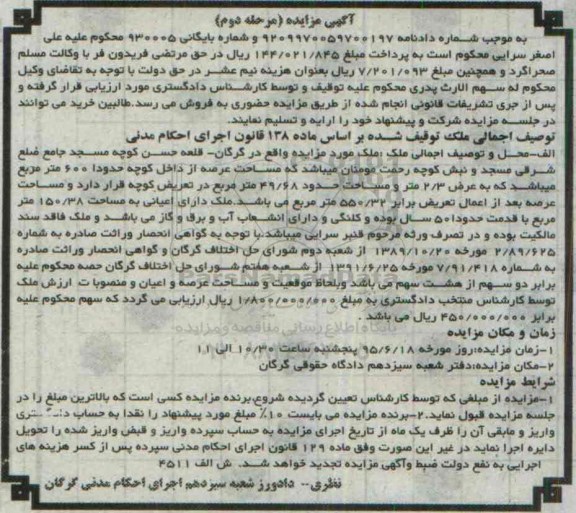 آگهی مزایده (مرحله دوم)
به موجب شماره دادنامه 9209970059700197 و شماره بایگانی 930005 محکوم علیه علی
اصغر سرایی محکوم است به پرداخت مبلغ 144/021/845 ریال در حق مرتضی فریدون فر با وکالت مسلم
صحراگرد و همچنین مبلغ 7/201/093 ریال بعنوان هزینه نیم عشر در حق دولت با توجه به تقاضای وکیل
محکوم له سهم الارث پدری محکوم علیه توقیف و توسط کارشناس دادگستری مورد ارزیابی قرار گرفته و
پس از جری تشریفات قانونی انجام شده از طریق مزایده حضوری به فروش می رسد.طالبین خرید می توانند
در جلسه مزایده شرکت و پیشنهاد خود را ارایه و تسلیم نمایند.
توصیف اجمالی ملک توقیف شده بر اساس ماده 138 قانون اجرای احکام مدنی
الف-محل و توصیف اجمالی ملک :ملک مورد مزایده واقع در گرگان- قلعه حسن کوچه مسجد جامع ضلع
شرقی مسجد و نبش کوچه رحمت مومنان میباشد که مساحت عرصه از داخل کوچه حدودا 600 متر مربع
میباشد که به عرض 2/3 متر و مساحت حدود 49/68 متر مربع در تعریض کوچه قرار دارد و مساحت
عرصه بعد از اعمال تعریض برابر 550/32 متر مربع می باشد.ملک دارای اعیانی به مساحت 150/38 متر
مربع با قدمت حدودا50 سال بوده و کلنگی و دارای انشعاب آب و برق و گاز می باشد و ملک فاقد سند
مالکیت بوده و در تصرف ورثه مرحوم قنبر سرایی میباشد.با توجه به گواهی انحصار وراثت صادره به شماره
2/89/625 مورخه 1389/10/20 از شعبه دوم شورای حل اختلاف گرگان و گواهی انحصار وراثت صادره
به شماره 7/91/418 مورخه 1391/6/25 از شعبه هفتم شورای حل اختلاف گرگان حصه محکوم علیه
برابر دو سهم از هشت سهم می باشد وبلحاظ موقعیت و مساحت عرصه و اعیان و منصوبات ارزش ملک
توسط کارشناس منتخب دادگستری به مبلغ 1/800/000/000 ریال ارزیابی می گردد که سهم محکوم علیه
برابر 450/000/000 ریال می باشد .
زمان و مکان مزایده
1-زمان مزایده:روز مورخه 95/6/18 پنجشنبه ساعت 10/30 الی 11
2-مکان مزایده:دفتر شعبه سیزدهم دادگاه حقوقی گرگان
شرایط مزایده
1-مزایده از مبلغی که توسط کارشناس تعیین گردیده شروع,برنده مزایده کسی است که بالاترین مبلغ را در
جلسه مزایده قبول نماید.2-برنده مزایده می بایست 10٪ مبلغ مورد پیشنهاد را نقدا به حساب دادگستری
واریز و مابقی آن را ظرف یک ماه از تاریخ اجرای مزایده به حساب سپرده واریز و قبض واریز شده را تحویل
دایره اجرا نماید در غیر این صورت وفق ماده 129 قانون اجرای احکام مدنی سپرده پس از کسر هزینه های
اجرایی به نفع دولت ضبط وآگهی مزایده تجدید خواهد شد. ش الف 4511
نظری-- دادورز شعبه سیزدهم اجرای احکام مدنی گرگان